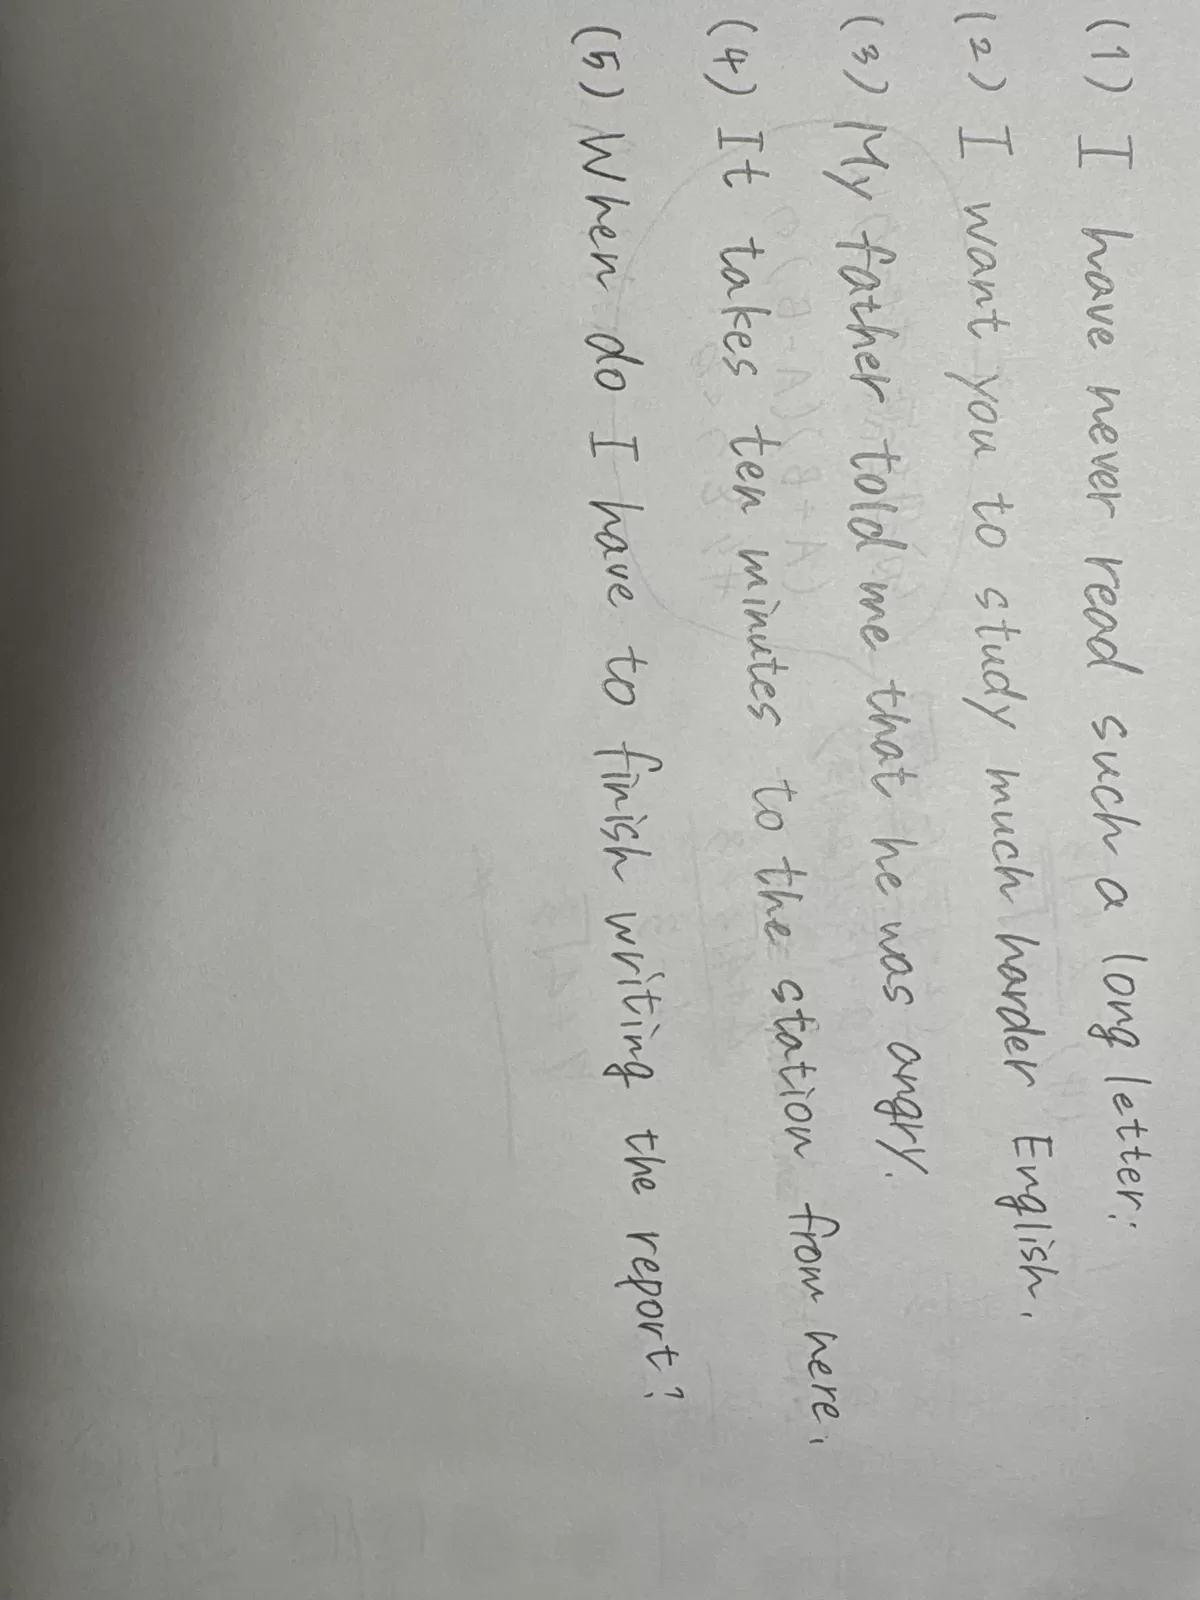 (1) I have never read such a long letter.
(2) I want you to study much harder English.
(3) My father told me that he was angry.
(4) It takes ten minutes to the station from here.
(5) When do I have to finish writing the report?